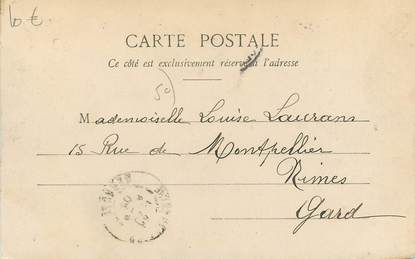 6 €
CARTE POSTALE
Ce côté est exclusivement réservé à l'adresse
50
Mademoiselle Louise Laurans
15 Rue de Montpellier
Nimes
Gard